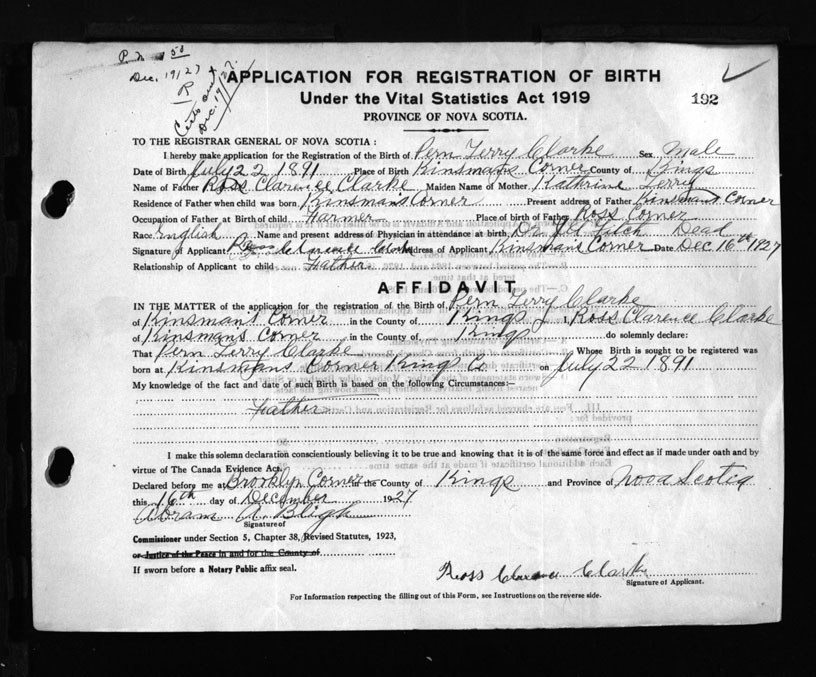 P.N. 1 50
Dec. 19/27
R
Certs out
Dec. 19/27.
APPLICATION FOR REGISTRATION OF BIRTH
Under the Vital Statistics Act 1919
192
PROVINCE OF NOVA SCOTIA.
TO THE REGISTRAR GENERAL OF NOVA SCOTIA :
I hereby make application for the Registration of the Birth of Pern Terry Clarke Sex Male
Date of Birth July 22 1891 Place of Birth Kinsmans Corner County of Kings
Name of Father Ross Clarence Clarke Maiden Name of Mother Kathrine Terry
Residence of Father when child was born Kinsmans Corner Present address of Father Kinsmans Corner
Occupation of Father at Birth of child Farmer Place of birth of Father Ross Corner
Race English Name and present address of Physician in attendance at birth Dr Fitch Dead
Signature of Applicant Ross Clarence Clarke Address of Applicant Kinsman's Corner Date Dec 16th 1927
Relationship of Applicant to child Father
AFFIDAVIT
IN THE MATTER of the application for the registration of the Birth of Pern Terry Clarke
of Kinsman's Corner in the County of Kings I, Ross Clarence Clarke
of Kinsmans Corner in the County of Kings do solemnly declare:
That Pern Terry Clarke Whose Birth is sought to be registered was
born at Kinsmans Corner Kings Co on July 22 1891
My knowledge of the fact and date of such Birth is based on the following Circumstances:—
Father
I make this solemn declaration conscientiously believing it to be true and knowing that it is of the same force and effect as if made under oath and by
virtue of The Canada Evidence Act.
Declared before me at Brooklyn Corner in the County of Kings and Province of Nova Scotia
this 16th day of December 1927
Abram A. Bligh
Signature of
Commissioner under Section 5, Chapter 38, Revised Statutes, 1923,
or Justice of the Peace in and for the County of
If sworn before a Notary Public affix seal.
Ross Clarence Clarke
Signature of Applicant.
For Information respecting the filling out of this Form, see Instructions on the reverse side.